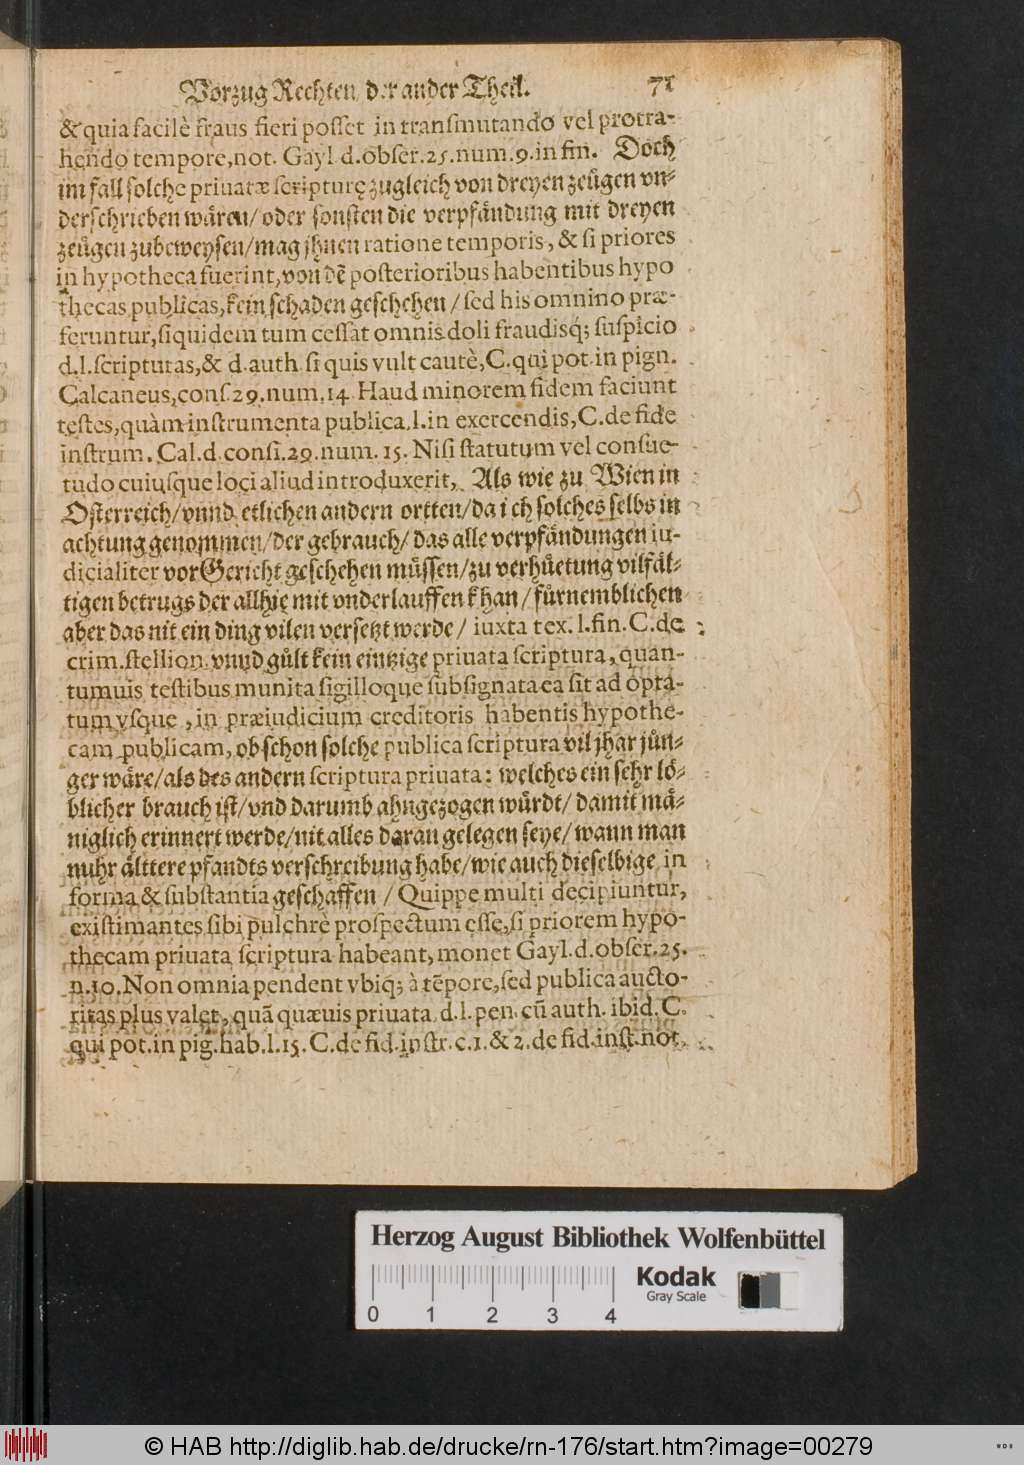 Vorzug Rechten der ander Theil. 71
& quia facilè fraus fieri posset in transmutando vel protra-
hendo tempore, not. Gayl d. obser. 25. num. 9. in fin. Doch
im fall solche priuatæ scripturę zugleich von dreyen zeůgen vn-
derschrieben wåren/ oder sonsten die verpfåndung mit dreyen
zeůgen zubeweysen/ mag jhnen ratione temporis, & si priores
in hypotheca fuerint, von dē posterioribus habentibus hypo
thecas publicas, kein schaden geschehen / sed his omnino præ-
feruntur, siquidem tum cessat omnis doli fraudisq; suspicio
d. l. scripturas, & d. auth. si quis vult cautè, C. qui pot. in pign.
Calcaneus, cons. 29. num. 14. Haud minorem fidem faciunt
testes, quàm instrumenta publica, l. in exercendis, C. de fide
instrum. Cal. d. consi. 29. num. 15. Nisi statutum vel consue-
tudo cuiusque loci aliud introduxerit, Als wie zu Wien in
Osterreich/ vnnd etlichen andern ortten/ da ich solches selbs in
achtung genommen/ der gebrauch/ das alle verpfåndungen iu-
dicialiter vor Gericht geschehen můssen/ zu verhůetung vilfål-
tigen betrugs der allhie mit vnderlauffen khan/ fůrnemblichen
aber das nit ein ding vilen versetzt werde/ iuxta tex. l. fin. C. de
crim. stellion. vnnd gůlt kein eintzige priuata scriptura, quan-
tumuis testibus munita sigilloque subsignata ea sit ad opta-
tum vsque, in præiudicium creditoris habentis hypothe-
cam publicam, ob schon solche publica scriptura vil jhar jůn-
ger wåre/ als des andern scriptura priuata: welches ein sehr lö-
blicher brauch ist/ vnd darumb ahngezogen wůrdt/ damit må-
niglich erinnert werde/ nit alles daran gelegen seye/ wann man
nuhr ålttere pfandts verschreibung habe/ wie auch dieselbige in
forma & substantia geschaffen / Quippe multi decipiuntur,
existimantes sibi pulchrè prospectum esse, si priorem hypo-
thecam priuata scriptura habeant, monet Gayl. d. obser. 25.
n. 10. Non omnia pendent vbiq; à tēpore, sed publica aucto-
ritas plus valet, quā quæuis priuata. d. l. pen. cū auth. ibid. C.
qui pot. in pig. hab. l. 15. C. de fid. instr. c. 1. & 2. de fid. inst. not.
Herzog August Bibliothek Wolfenbüttel
Kodak
Gray Scale
0 1 2 3 4
© HAB http://diglib.hab.de/drucke/rn-176/start.htm?image=00279